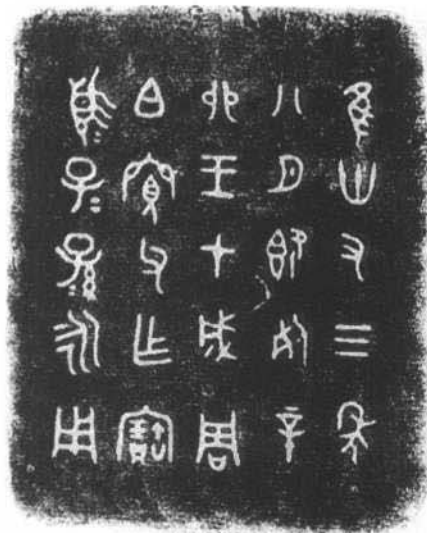 隹卅又三年
八月既死辛
卯王才成周
白寬父乍寶
盨子=孫=永用